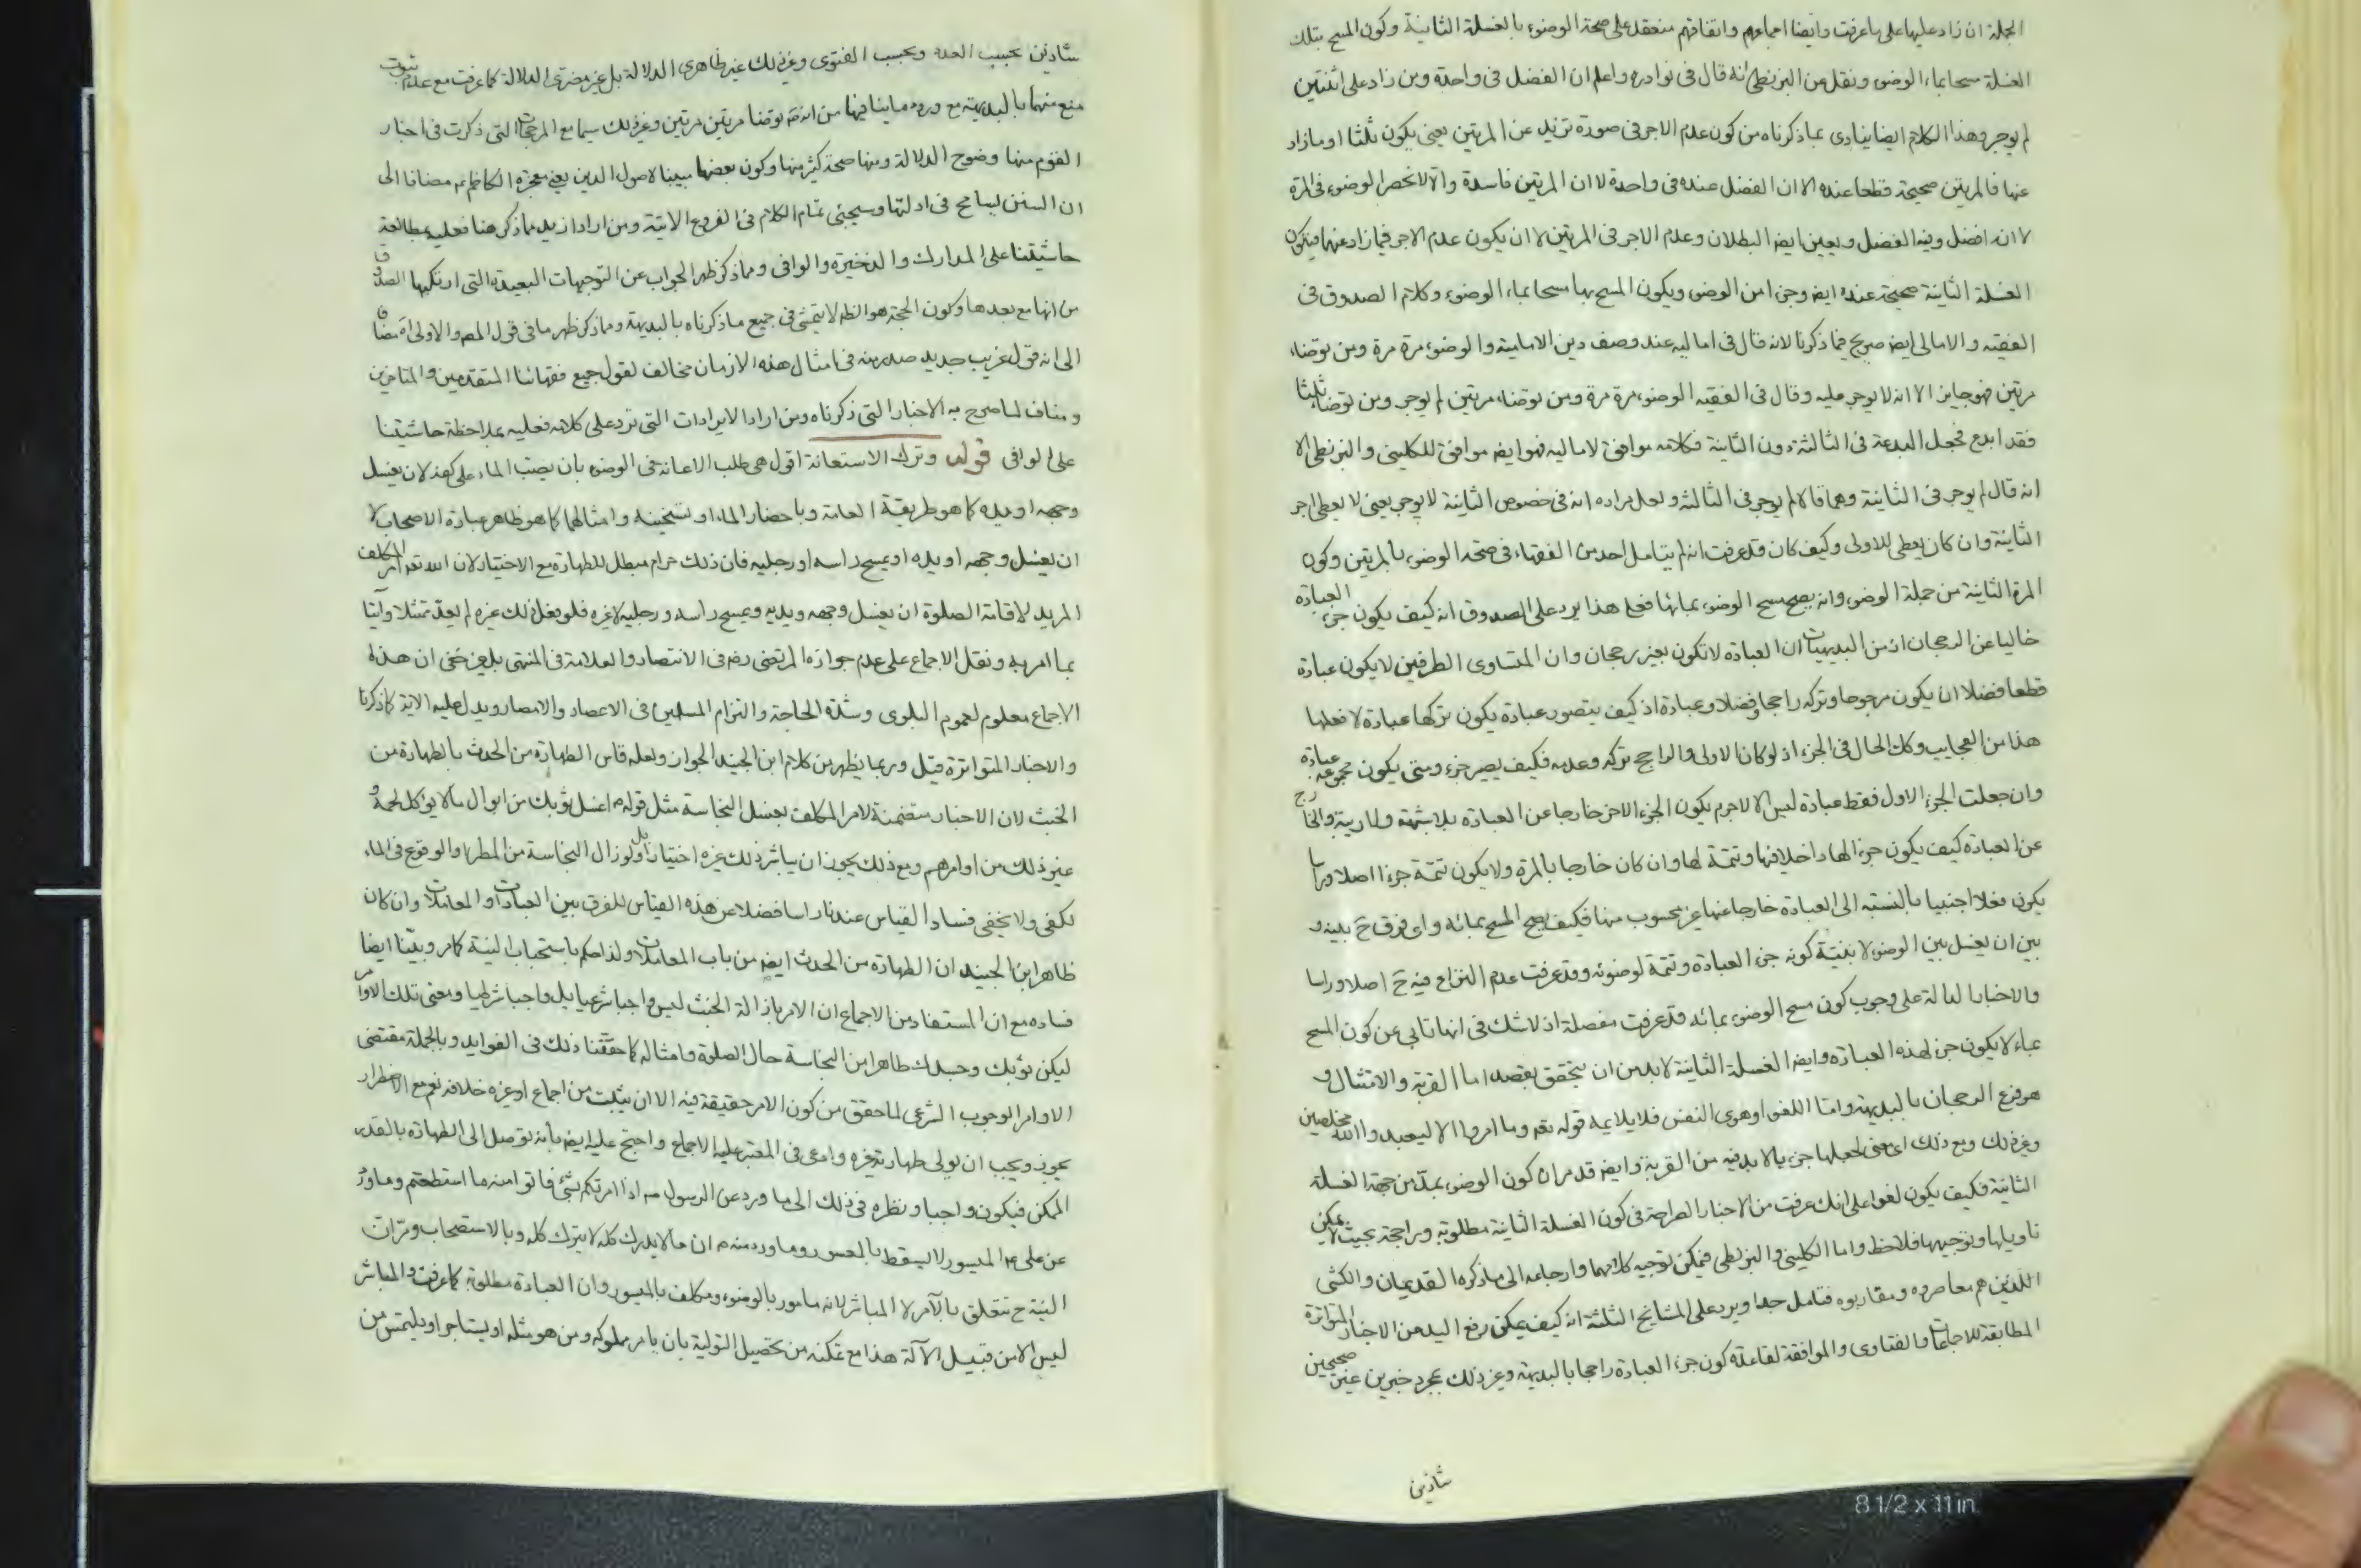 الجملة ان زاد عليها على ما عرفت وايضا اجماعهم واتفاقهم منعقد على صحة الوضوء بالغسلة الثانية وكون المسح بتلك
الغسلة مسحا بماء الوضوء ونقل عن البزنطى انه قال فى نوادره واعلم ان الفضل فى واحدة ومن زاد على اثنتين
لم يوجر وهذا الكلام ايضا ينادى بما ذكرناه من كون عدم الاجر فى صورة تزيد عن المرتين يعنى يكون ثلثا او ما زاد
عنها فالمرتين صحيحة قطعا عنده الا ان الفضل عنده فى واحدة لا ان المرتين فاسدة والا لانحصر الوضوء فى المرة
لا انه افضل وفيه الفضل ويعين ايضا البطلان وعدم الاجر فى المرتين لا ان يكون عدم الاجر فيما زاد عنهما فيكون
الغسلة الثانية صحيحة عنده ايضا وجزء من الوضوء ويكون المسح بها مسحا بماء الوضوء وكلام الصدوق فى
الفقيه والامالى ايضا صريح فيما ذكرنا لانه قال فى اماليه عند وصف دين الامامية والوضوء مرة مرة ومن توضاء
مرتين فهو جايز الا انه لا يوجر عليه وقال فى الفقيه الوضوء مرة مرة ومن توضاء مرتين لم يوجر ومن توضاء ثلثا
فقد ابدع فجعل البدعة فى الثالثة دون الثانية فكلامه موافق لاماليه فهو ايضا موافق للكلينى والبزنطى الا
انه قال لم يوجر فى الثانية وهما قالا لم يوجر فى الثالثة ولعل مراده انه فى خصوص الثانية لا يوجر يعنى لا يعطى اجر
الثانية وان كان يعطى للاولى وكيف كان قد عرفت انه لم يتامل احد من الفقهاء فى صحة الوضوء بالمرتين وكون
المرة الثانية من جملة الوضوء وانه يصح مسح الوضوء بمائها فعلى هذا يرد على الصدوق انه كيف يكون جزء العبادة
خاليا عن الرجحان اذ من البديهيات ان العبادة لا تكون بغير رجحان وان المتساوى الطرفين لا يكون عبادة
قطعا فضلا ان يكون مرجوحا وتركه راجحا وفضلا وعبادة اذ كيف يتصور عبادة يكون تركها عبادة لا فعلها
هذا من العجايب وكذا الحال فى الجزء اذ لو كان الاولى والراجح تركه وعدمه فكيف يصير جزء ومتى يكون مجموعه عبادة
وان جعلت الجزء الاول فقط عبادة ليس الا لاجرم يكون الجزء الاخر خارجا عن العبادة بلا شبهة ولا ريبة والخارج
عن العبادة كيف يكون جزء لها داخلا فيها وتتمة لها وان كان خارجا بالمرة ولا يكون تتمة جزءا اصلا وراسا
يكون فعلا اجنبيا بالنسبة الى العبادة خارجا عنها غير محسوب منها فكيف يصح المسح بمائه واى فرق ح بينه و
بين ان يغسل بين الوضوء لا بنية كونه جزء العبادة وتتمة لوضوئه وقد عرفت عدم النزاع فيه ح اصلا وراسا
والاخبار الدالة على وجوب كون مسح الوضوء بمائه قد عرفت مفصلة اذ لا شك فى انها تابى عن كون المسح
بماء لا يكون جزء لهذه العبادة وايضا الغسلة الثانية لا بد من ان يتحقق بقصد اما القربة والامتثال و
هو فرع الرجحان بالبديهة واما اللغو او هوى النفس فلا يلايمه قوله تعه وما امروا الا ليعبدوا الله مخلصين
وغير ذلك ومع ذلك اى معنى لجعلها جزء لما لا بد فيه من القربة وايضا قد مر ان كون الوضوء بمد من جهة الغسلة
الثانية فكيف يكون لغوا على انك عرفت من الاخبار الصراحة فى كون الغسلة الثانية مطلوبة وراجحة بحيث لا يمكن
تاويلها وتوجيهها فلاحظ واما الكلينى والبزنطى فيمكن توجيه كلامهما وارجاعه الى ما ذكره القديمان والكشى
اللذين هم معاصروه ومقاربوه فتامل جدا ويرد على المشايخ الثلثة انه كيف يمكن رفع اليد عن الاخبار المتواترة
المطابقة للاجماعات والفتاوى والموافقة لقاعدة كون جزء العبادة راجحا بالبديهة وغير ذلك بمجرد خبرين غير صحيحين
شاذين
شاذين بحسب العدد وبحسب الفتوى وغير ذلك غير ظاهرى الدلالة بل غير مضرى الدلالة كما عرفت مع عدم ثبوت
منع منهما بالبديهة مع ورود ما ينافيها من انه ص توضا مرتين مرتين وغير ذلك سيما مع المرجحات التى ذكرت فى اخبار
القوم منها وضوح الدلالة ومنها صحة كثير منها وكون بعضها مبينا لاصول الدين يعنى معجزة الكاظم ع مضافا الى
ان السنن يسامح فى ادلتها وسيجئ تمام الكلام فى الفروع الاتية ومن اراد ازيد مما ذكر هنا فعليه بمطالعة
حاشيتنا على المدارك والذخيرة والوافى ومما ذكر ظهر الجواب عن التوجيهات البعيدة التى ارتكبها الصدوق
من انها مع بعدها وكون الحجة هو الظهر لا يتمشى فى جميع ما ذكرناه بالبديهة ومما ذكر ظهر ما فى قول المص والاولى اه مضافا
الى انه قول غريب جديد صدر منه فى امثال هذه الازمان مخالف لقول جميع فقهائنا المتقدمين والمتاخرين
ومناف لما صرح به الاخبار التى ذكرناه ومن اراد الايرادات التى ترد على كلامه فعليه بملاحظة حاشيتنا
على الوافى قوله وترك الاستعانة اقول هى طلب الاعانة فى الوضوء بان يصب الماء على كفه لان يغسل
وجهه او يده كما هو طريقة العامة وباحضار الماء او تسخينه وامثالهما كما هو ظاهر عبارة الاصحاب لا
ان يغسل وجهه او يده او يمسح راسه او رجليه فان ذلك حرام مبطل للطهارة مع الاختيار لان الله تعه امر المكلف
المريد لاقامة الصلوة ان يغسل وجهه ويديه ويمسح راسه ورجليه لا غيره فلو فعل ذلك غيره لم يعد ممتثلا وآتيا
بما امر به ونقل الاجماع على عدم جوازه المرتضى رضه فى الانتصار والعلامة فى المنتهى بل غير خفى ان هذا
الاجماع معلوم لعموم البلوى وشدة الحاجة والتزام المسلمين فى الاعصار والامصار ويدل عليه الاية كما ذكرنا
والاخبار المتواترة قيل وربما يظهر من كلام ابن الجنيد الجواز ولعله قاس الطهارة من الحدث بالطهارة من
الخبث لان الاخبار متضمنة لامر المكلف بغسل النجاسة مثل قوله ع اغسل ثوبك من ابوال ما لا يؤكل لحمه و
غير ذلك من اوامرهم ومع ذلك يجوز ان يباشر ذلك غيره اختيارا بل ولو زال النجاسة من المطر او الوقوع فى الماء
لكفى ولا يخفى فساد القياس عندنا راسا فضلا عن هذه القياس للفرق بين العبادات والمعاملات وان كان
ظاهر ابن الجنيد ان الطهارة من الحدث ايضا من باب المعاملات ولذا حكم باستحباب النية كما مر وبينا ايضا
فساده مع ان المستفاد من الاجماع ان الامر بازالة الخبث ليس واجبا شرعيا بل واجبا شرطيا ومعنى تلك الاوامر
ليكن ثوبك وجسدك طاهرا من النجاسة حال الصلوة وامثاله كما حققنا ذلك فى الفوايد وبالجملة مقتضى
الاوامر الوجوب الشرعى لما حقق من كون الامر حقيقة فيه الا ان يثبت من اجماع او غيره خلافه نعم مع الاضطرار
يجوز ويجب ان يولى طهارته غيره وادعى فى المعتبر عليه الاجماع واحتج عليه ايضا بانه توصل الى الطهارة بالقدر
الممكن فيكون واجبا ونظره فى ذلك الى ما ورد عن الرسول ص اذا امرتكم بشئ فاتوا منه ما استطعتم وما ورد
عن على ع الميسور لا يسقط بالمعسور وما ورد منه ع ان ما لا يدرك كله لا يترك كله وبالاستصحاب ومرات
النية ح تتعلق بالآمر لا المباشر لانه مامور بالوضوء ومكلف بالميسور وان العبادة مطلوبة كما عرفت والمباشر
ليس الا من قبيل الآلة هذا مع تمكنه من تحصيل التولية بان يامر مملوكه ومن هو مثله او يستاجر او يلتمس من